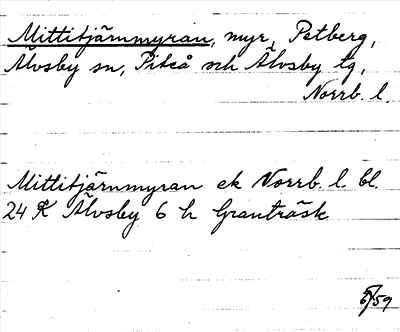 Mittitjärnmyran, myr, Petberg,
Älvsby sn, Piteå och Älvsby tg,
Norrb. l.
Mittitjärnmyran ek Norrb. l. bl.
24 K Älvsby 6 h Granträsk
/59